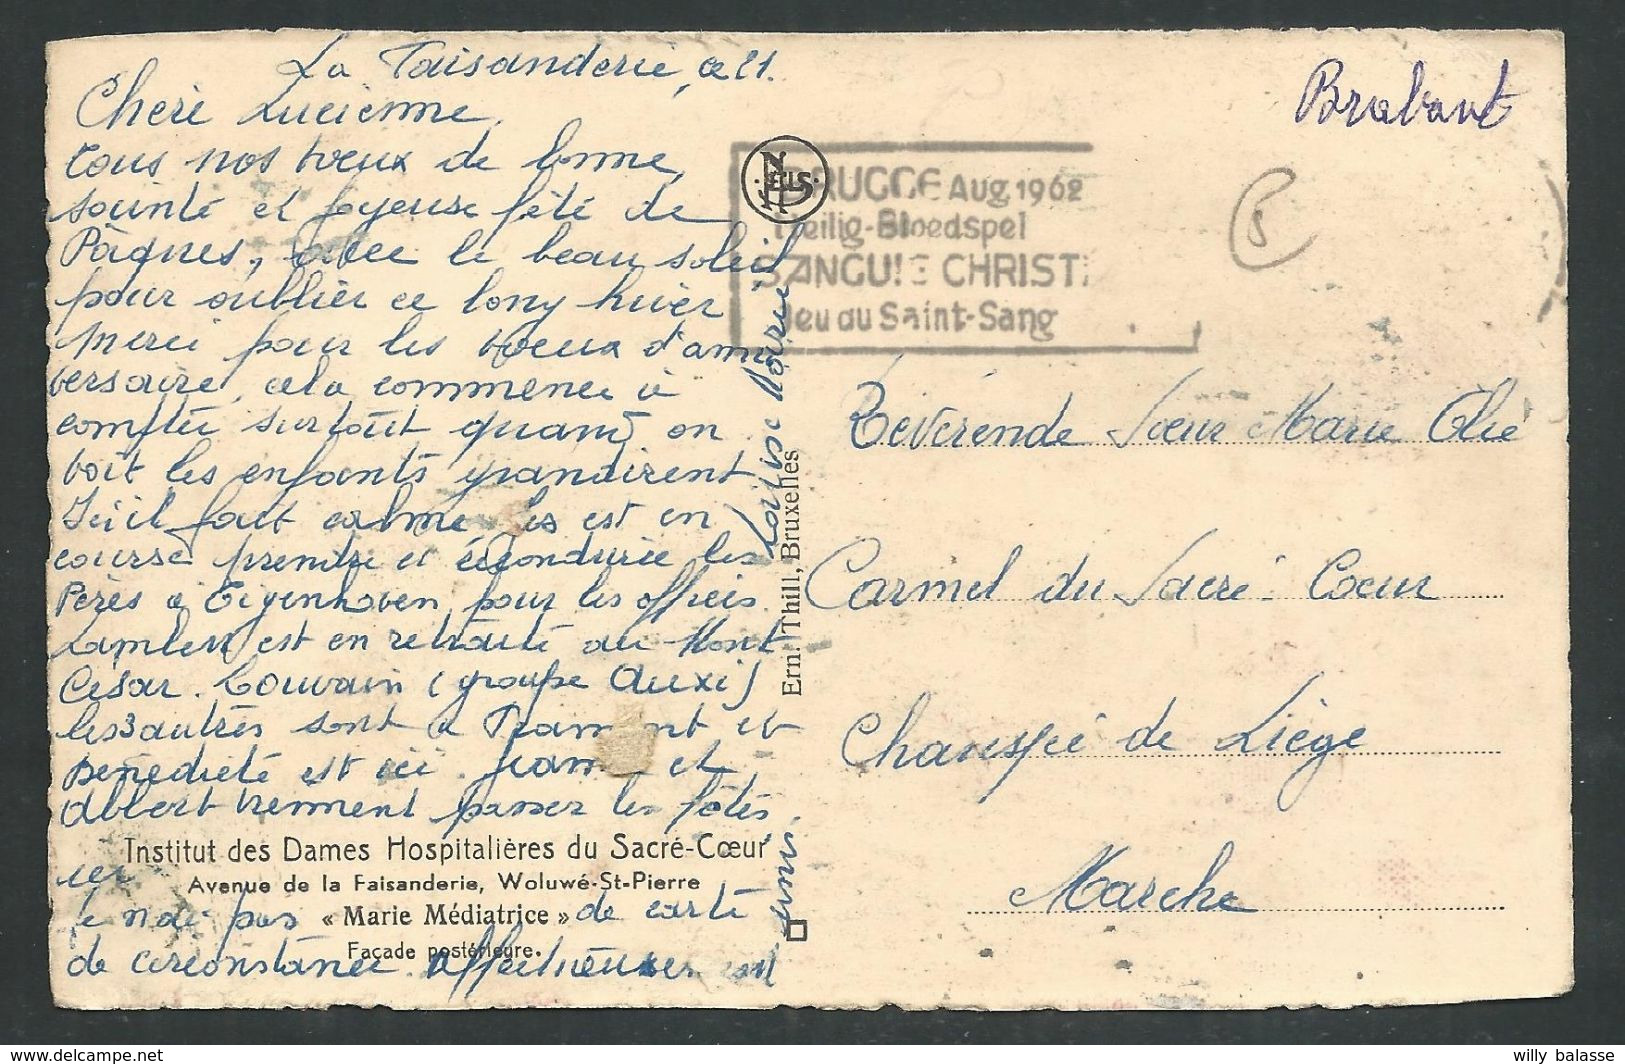 La Faisanderie, ce 21.
Chère Lucienne,
tous nos voeux de bonne,
sainte et joyeuse fête de
Pâques, avec le beau soleil
pour oublier ce long hiver
Merci pour les voeux d'anni
versaire, cela commence à
compter surtout quand on
voit les enfants grandirent
Ici il fait calme, est en
course prendre et reconduire les
Pères à Eegenhoven pour les offices.
Lambert est en retraite au Mont
César. Louvain (groupe Auxi)
les 3 autres sont à et
Bénédicte est ici. et
Albert viennent passer les fêtes
ici
Je n'ai pas de carte
de circonstance. Affectueusement
unis
Louise Marie
Institut des Dames Hospitalières du Sacré-Cœur
Avenue de la Faisanderie, Woluwé-St-Pierre
« Marie Médiatrice »
Façade postérieure.
Ern. Thill, Bruxelles
NELS
BRUGGE Aug 1962
Heilig-Bloedspel
SANGUIS CHRISTI
Jeu du Saint-Sang
Brabant
5
Révérende Soeur Marie Élie
Carmel du Sacré-Coeur
Chaussée de Liège
Marche
willy balasse